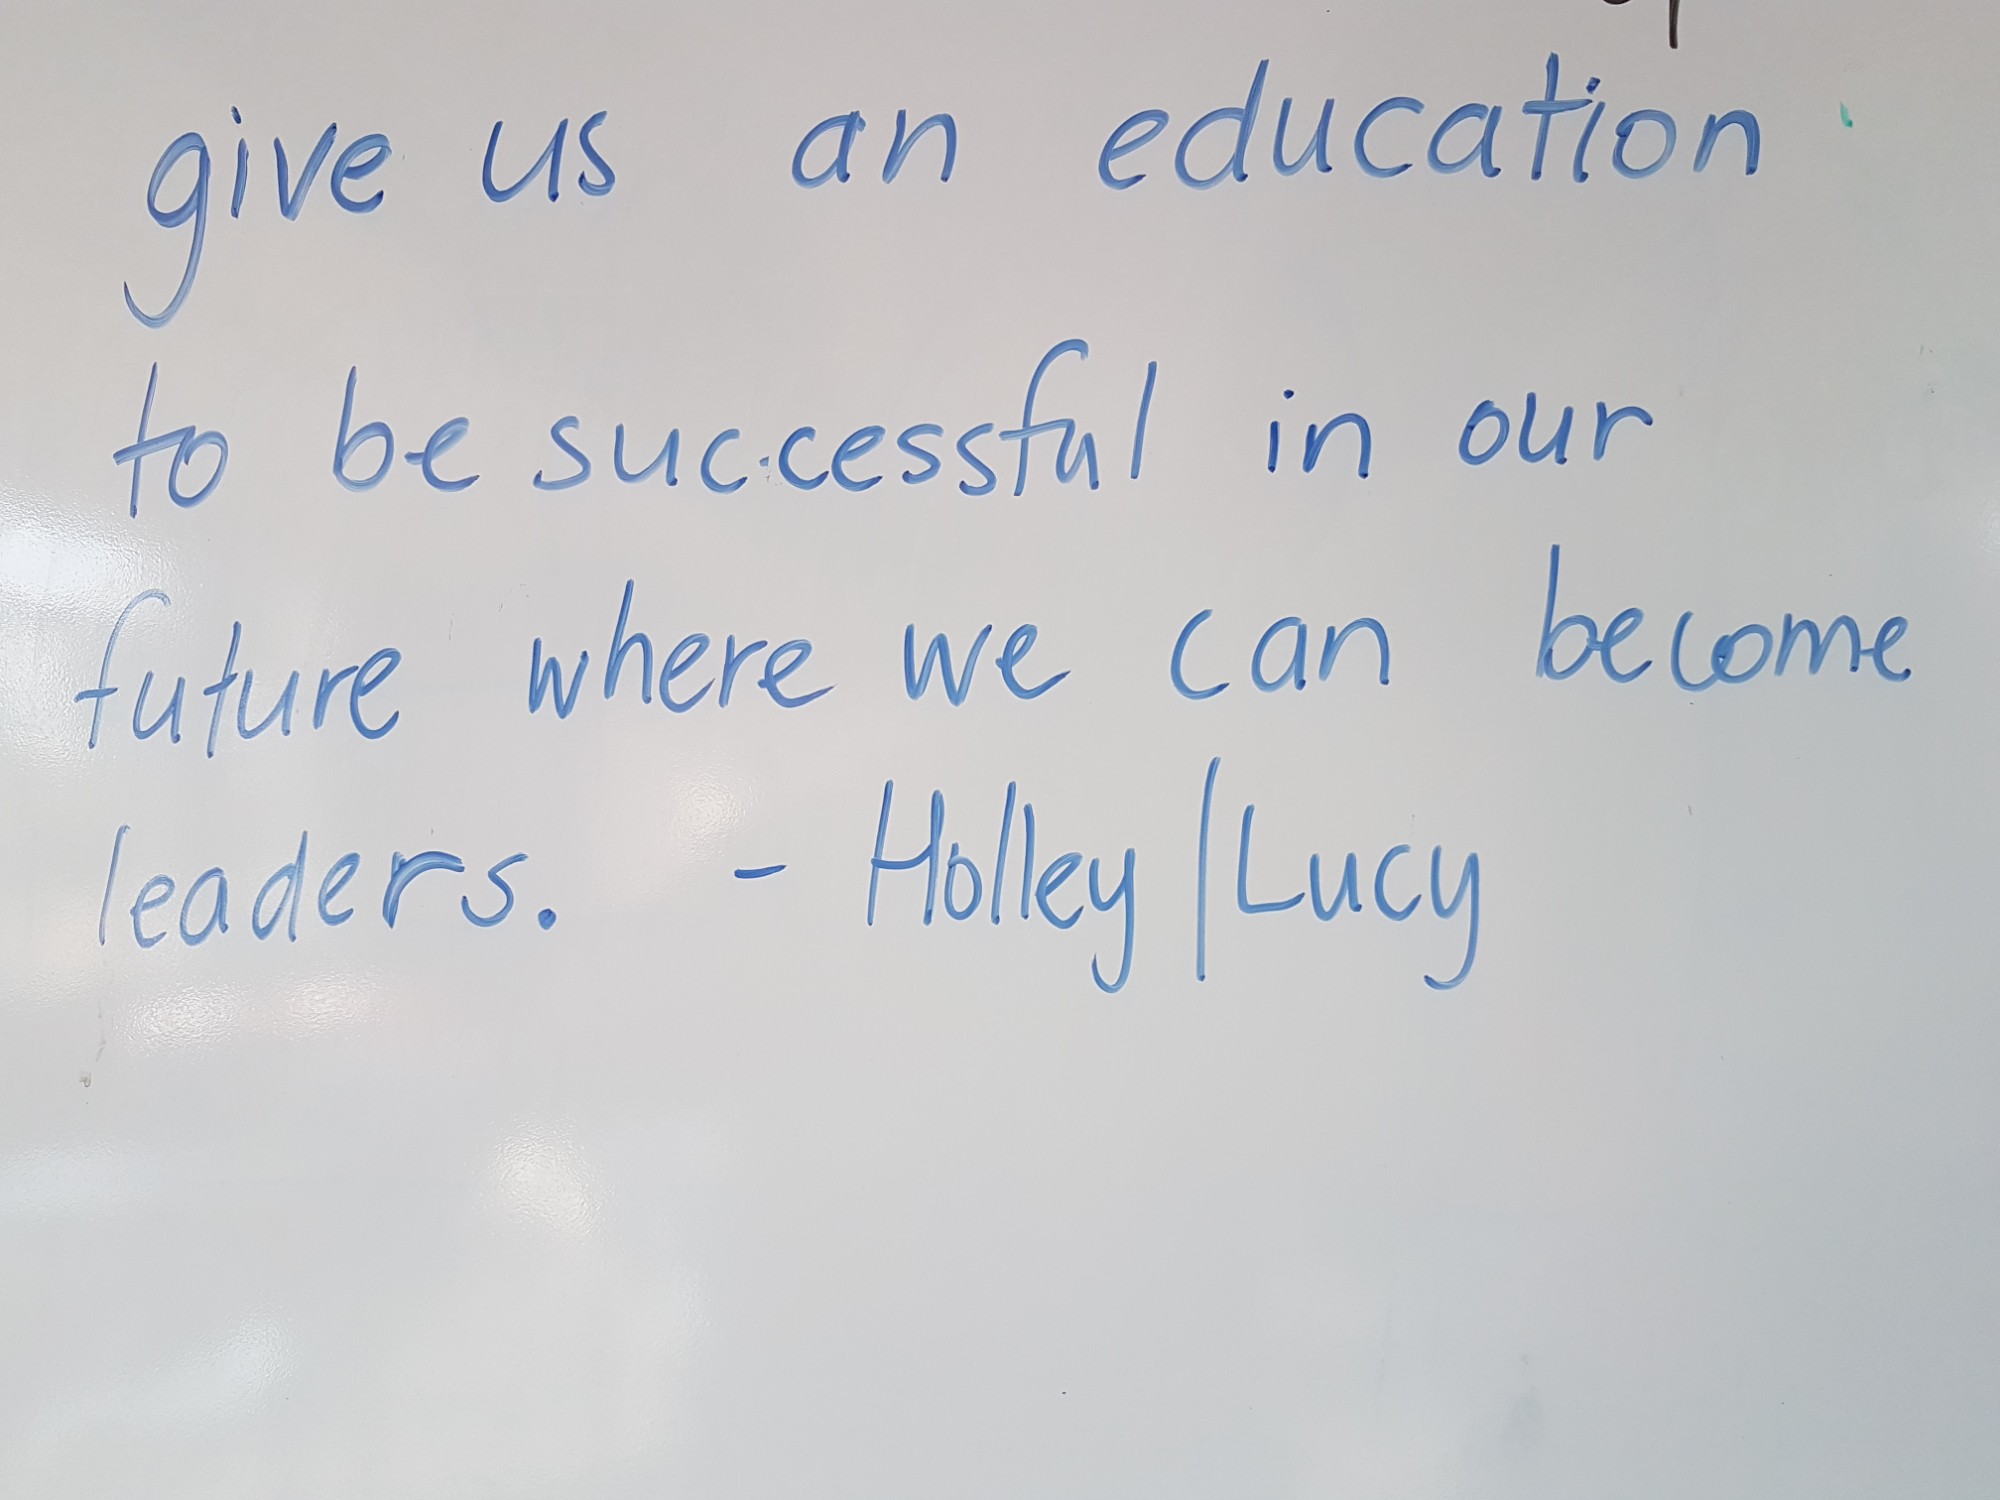 give us an education
to be successful in our
future where we can become
leaders. - Holley/Lucy